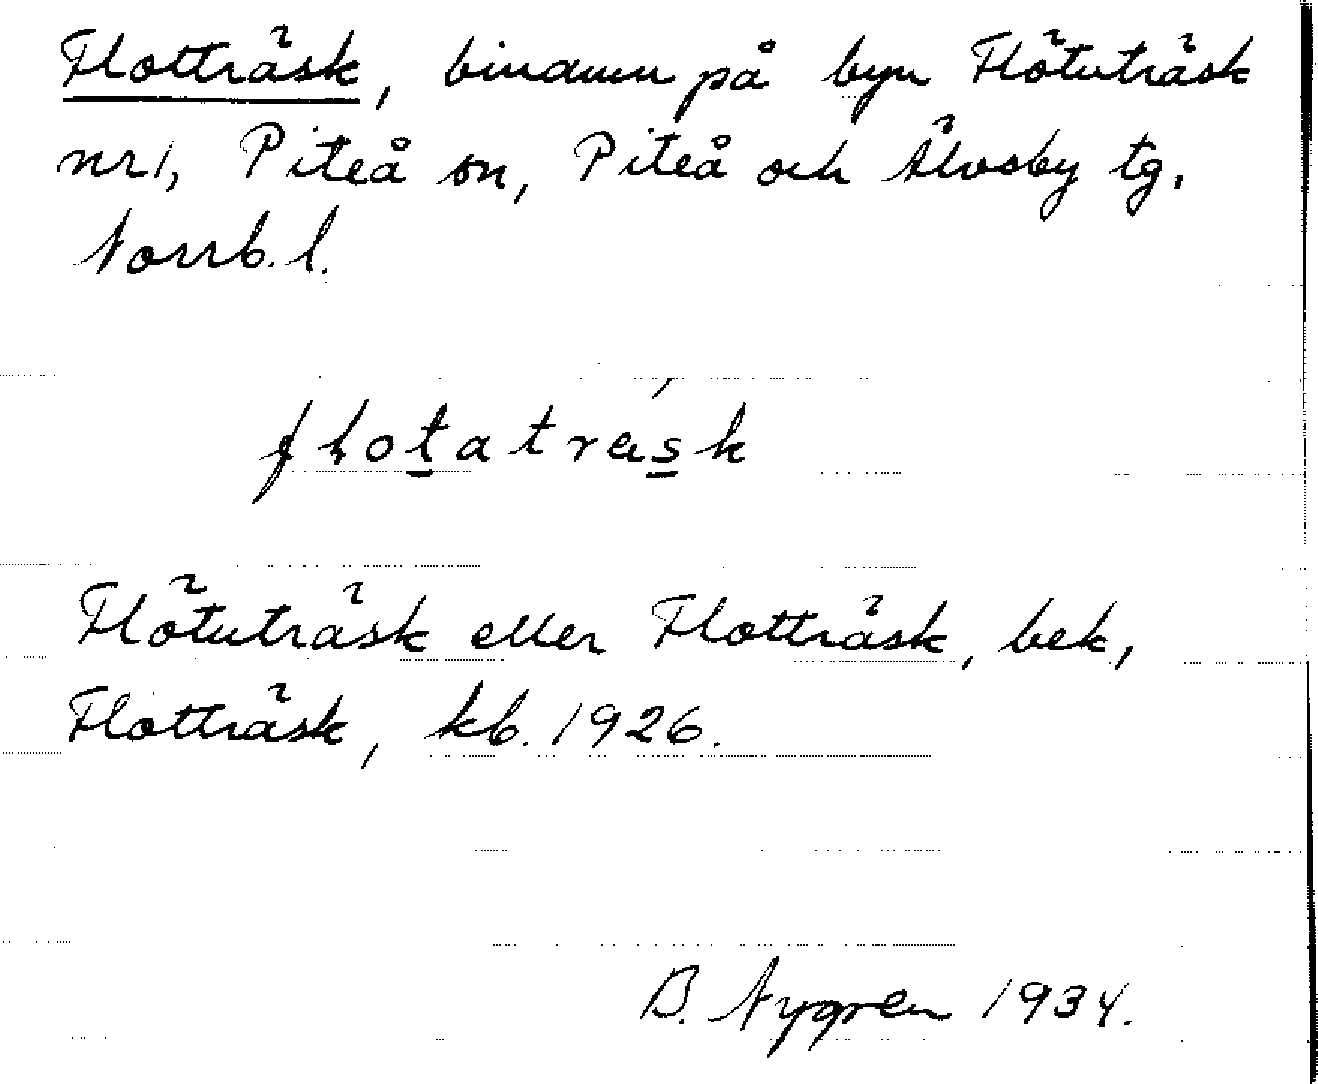 Flotträsk, binamn på byn Flötuträsk
nr 1, Piteå sn, Piteå och Älvsby tg.
Norrb. l.
flotaträsk
Flötuträsk eller Flotträsk, bek,
Flotträsk, kb. 1926.
B. Nygren 1934.